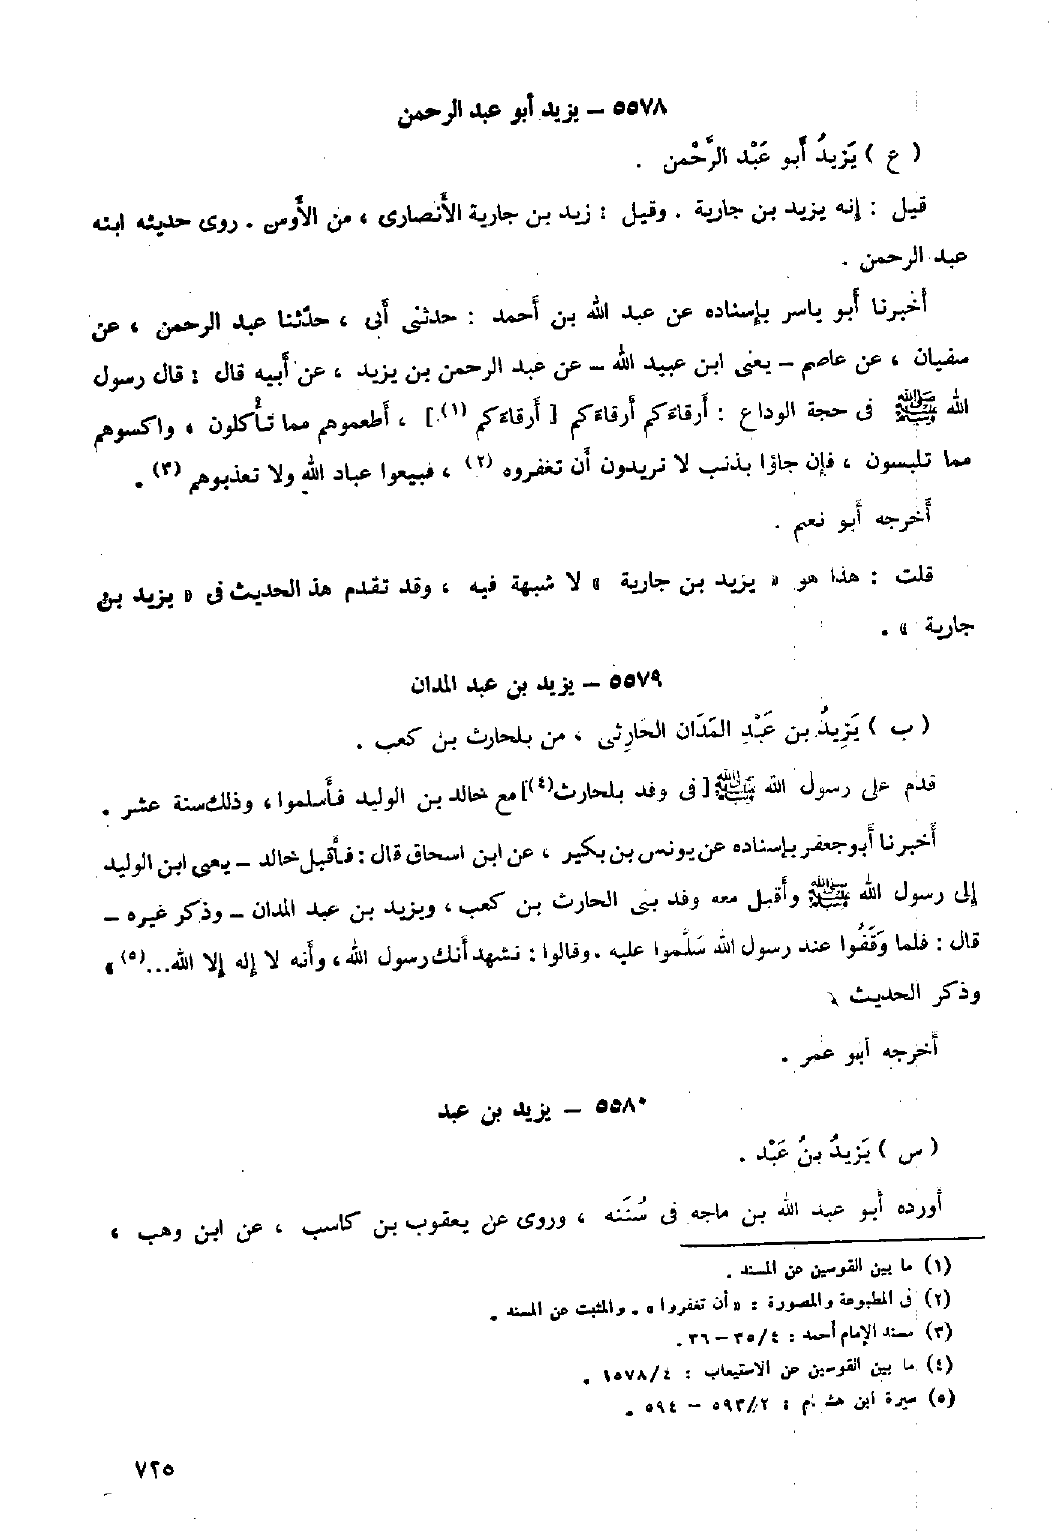 ٥٥٧٨ – يزيد أبو عبد الرحمن
( ع ) يَزِيدُ أَبو عَبْد الرَّحْمن .
قيل : إنه يزيد بن جارية . وقيل : زيد بن جارية الأَنصارى ، من الأَوس . روى حديثه ابنه
عبد الرحمن .
أَخبرنا أَبو ياسر بإِسناده عن عبد الله بن أَحمد : حدثنى أَبى ، حدّثنا عبد الرحمن ، عن
سفيان ، عن عاصم – يعنى ابن عبيد الله – عن عبد الرحمن بن يزيد ، عن أَبيه قال : قال رسول
الله ﷺ فى حجة الوداع : أَرقاءَكم أَرقاءَكم [ أَرقاءَكم (١) ] ، أَطعموهم مما تأْكلون ، واكسوهم
مما تلبسون ، فإن جاؤا بذنب لا تريدون أَن تغفروه (٢) ، فبيعوا عباد الله ولا تعذبوهم (٣) .
أَخرجه أَبو نعيم .
قلت : هذا هو « يزيد بن جارية » لا شبهة فيه ، وقد تقدم هذ الحديث فى « يزيد بن
جارية » .
٥٥٧٩ – يزيد بن عبد المدان
( ب ) يَزِيدُ بن عَبْدِ المَدَان الحَارِثى ، من بلحارث بن كعب .
قدم على رسول الله ﷺ [ فى وفد بلحارث (٤) ] مع خالد بن الوليد فأَسلموا ، وذلك سنة عشر .
أَخبرنا أَبو جعفر بإسناده عن يونس بن بكير ، عن ابن اسحاق قال : فأَقبل خالد – يعنى ابن الوليد
إلى رسول الله ﷺ وأَقبل معه وفد بنى الحارث بن كعب ، ويزيد بن عبد المدان – وذكر غيره –
قال : فلما وَقَفُوا عند رسول الله سَلَّموا عليه . وقالوا : نشهد أَنك رسول الله ، وأَنه لا إله إلا الله... (٥) »
وذكر الحديث .
أَخرجه أَبو عمر .
٥٥٨٠ – يزيد بن عبد
( س ) يَزِيدُ بنُ عَبْد .
أَورده أَبو عبد الله بن ماجه فى سُنَنه ، وروى عن يعقوب بن كاسب ، عن ابن وهب ،
(١) ما بين القوسين عن المسند .
(٢) فى المطبوعة والمصورة : « أن تغفروا » . والمثبت عن المسند .
(٣) مسند الإمام أحمد : ٤/ ٣٥ – ٣٦ .
(٤) ما بين القوسين عن الاستيعاب : ٤/ ١٥٧٨ .
(٥) سيرة ابن هشام : ٢/ ٥٩٣ – ٥٩٤ .
٧٢٥